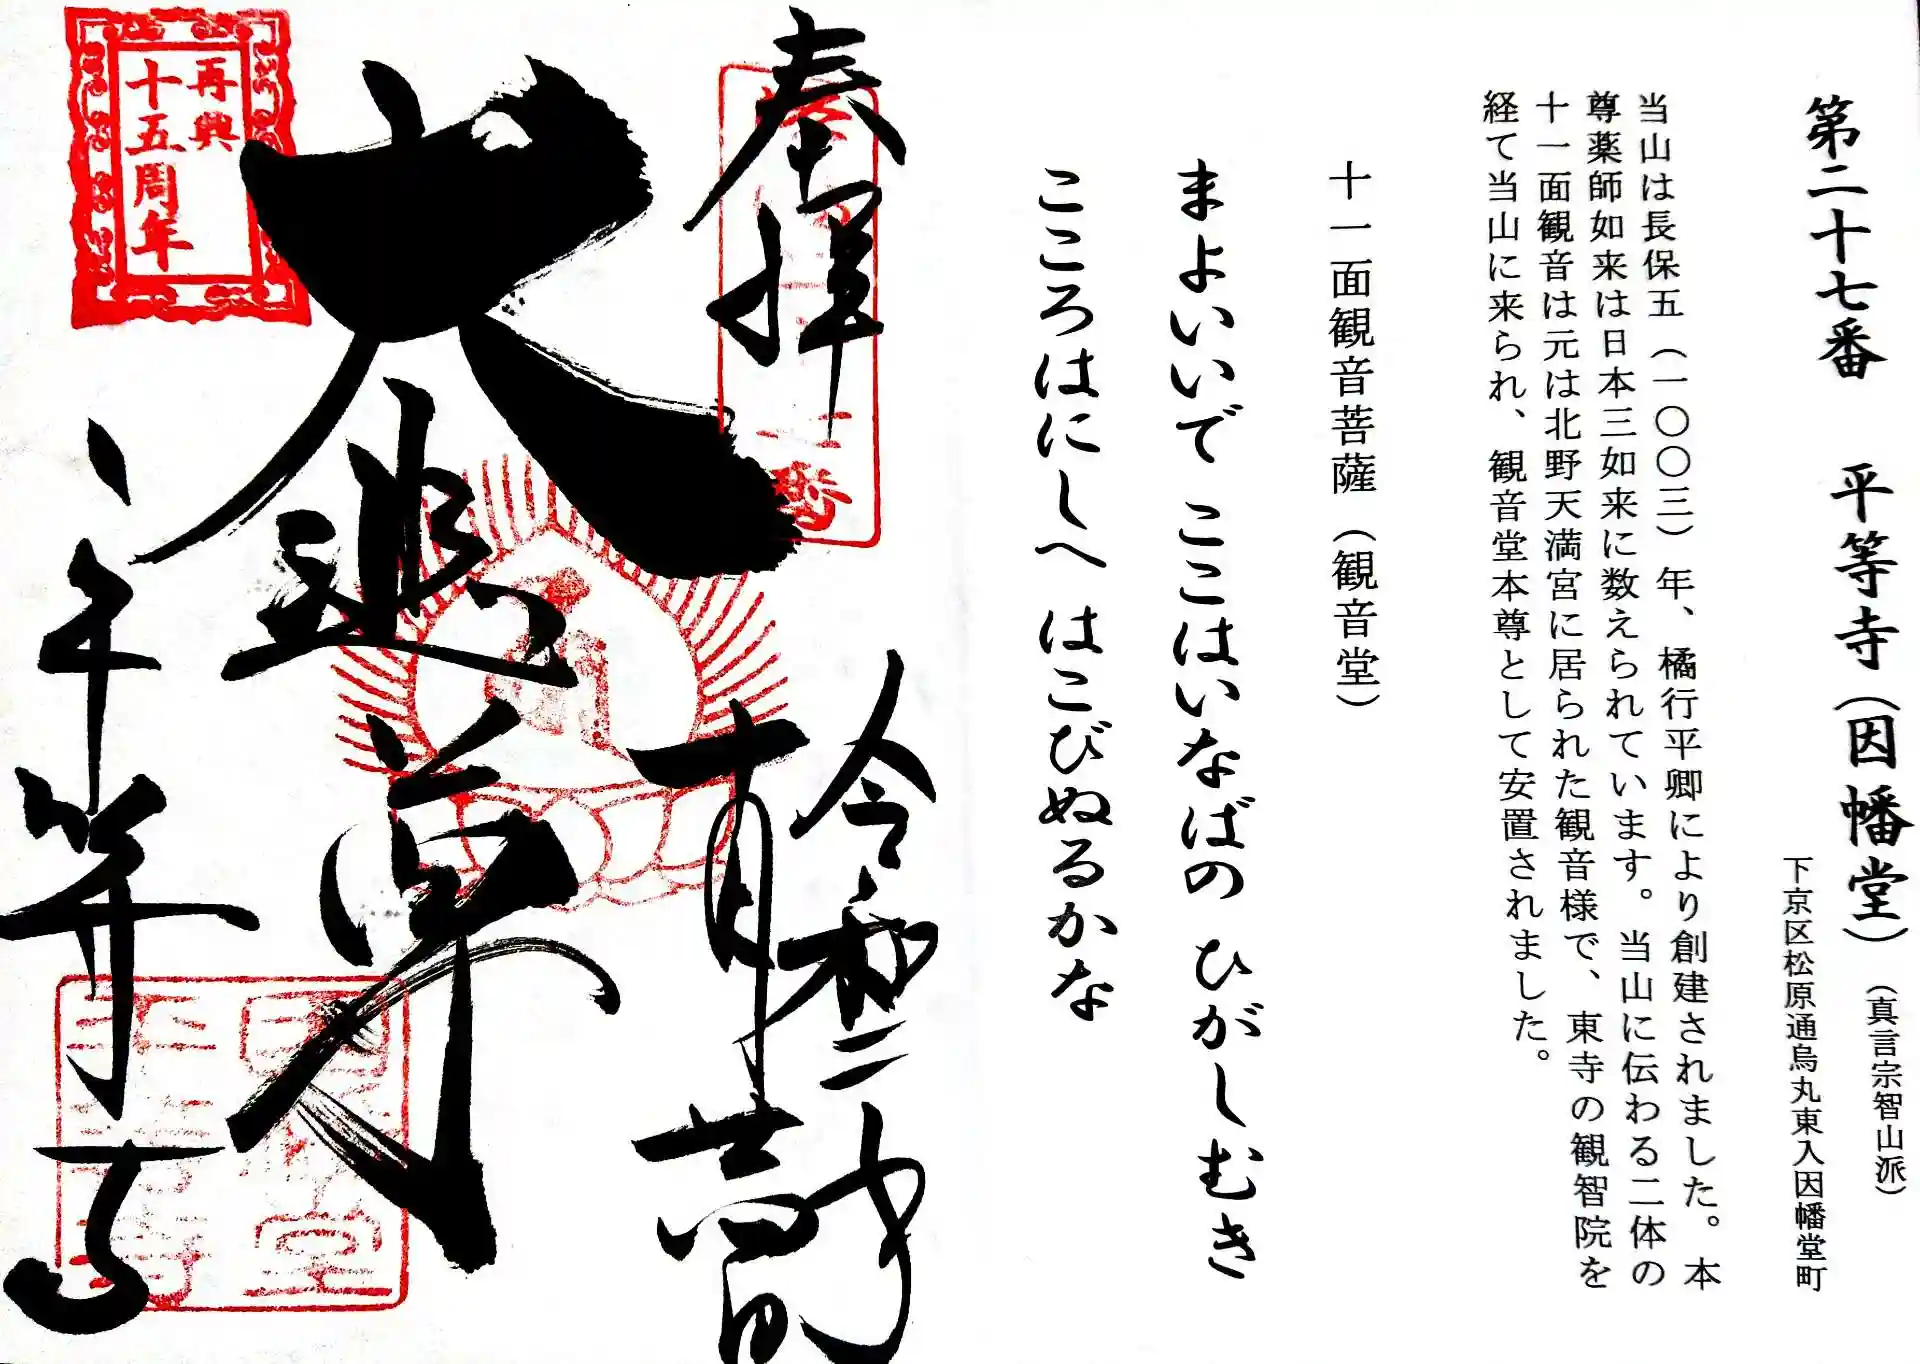 第二十七番 平等寺(因幡堂)(真言宗智山派)
下京区松原通烏丸東入因幡堂町
当山は長保五(一〇〇三)年、橘行平卿により創建されました。本
尊薬師如来は日本三如来に数えられています。当山に伝わる二体の
十一面観音は元は北野天満宮に居られた観音様で、東寺の観智院を
経て当山に来られ、観音堂本尊として安置されました。
十一面観音菩薩(観音堂)
まよいいで ここはいなばの ひがしむき
こころはにしへ はこびぬるかな
奉拝
令和二歳
十月廿四日
大悲尊
平等寺
再興
十五周年